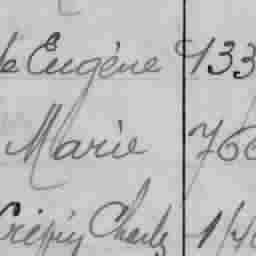 Eugène 933
Marie 766
Crépin Charles